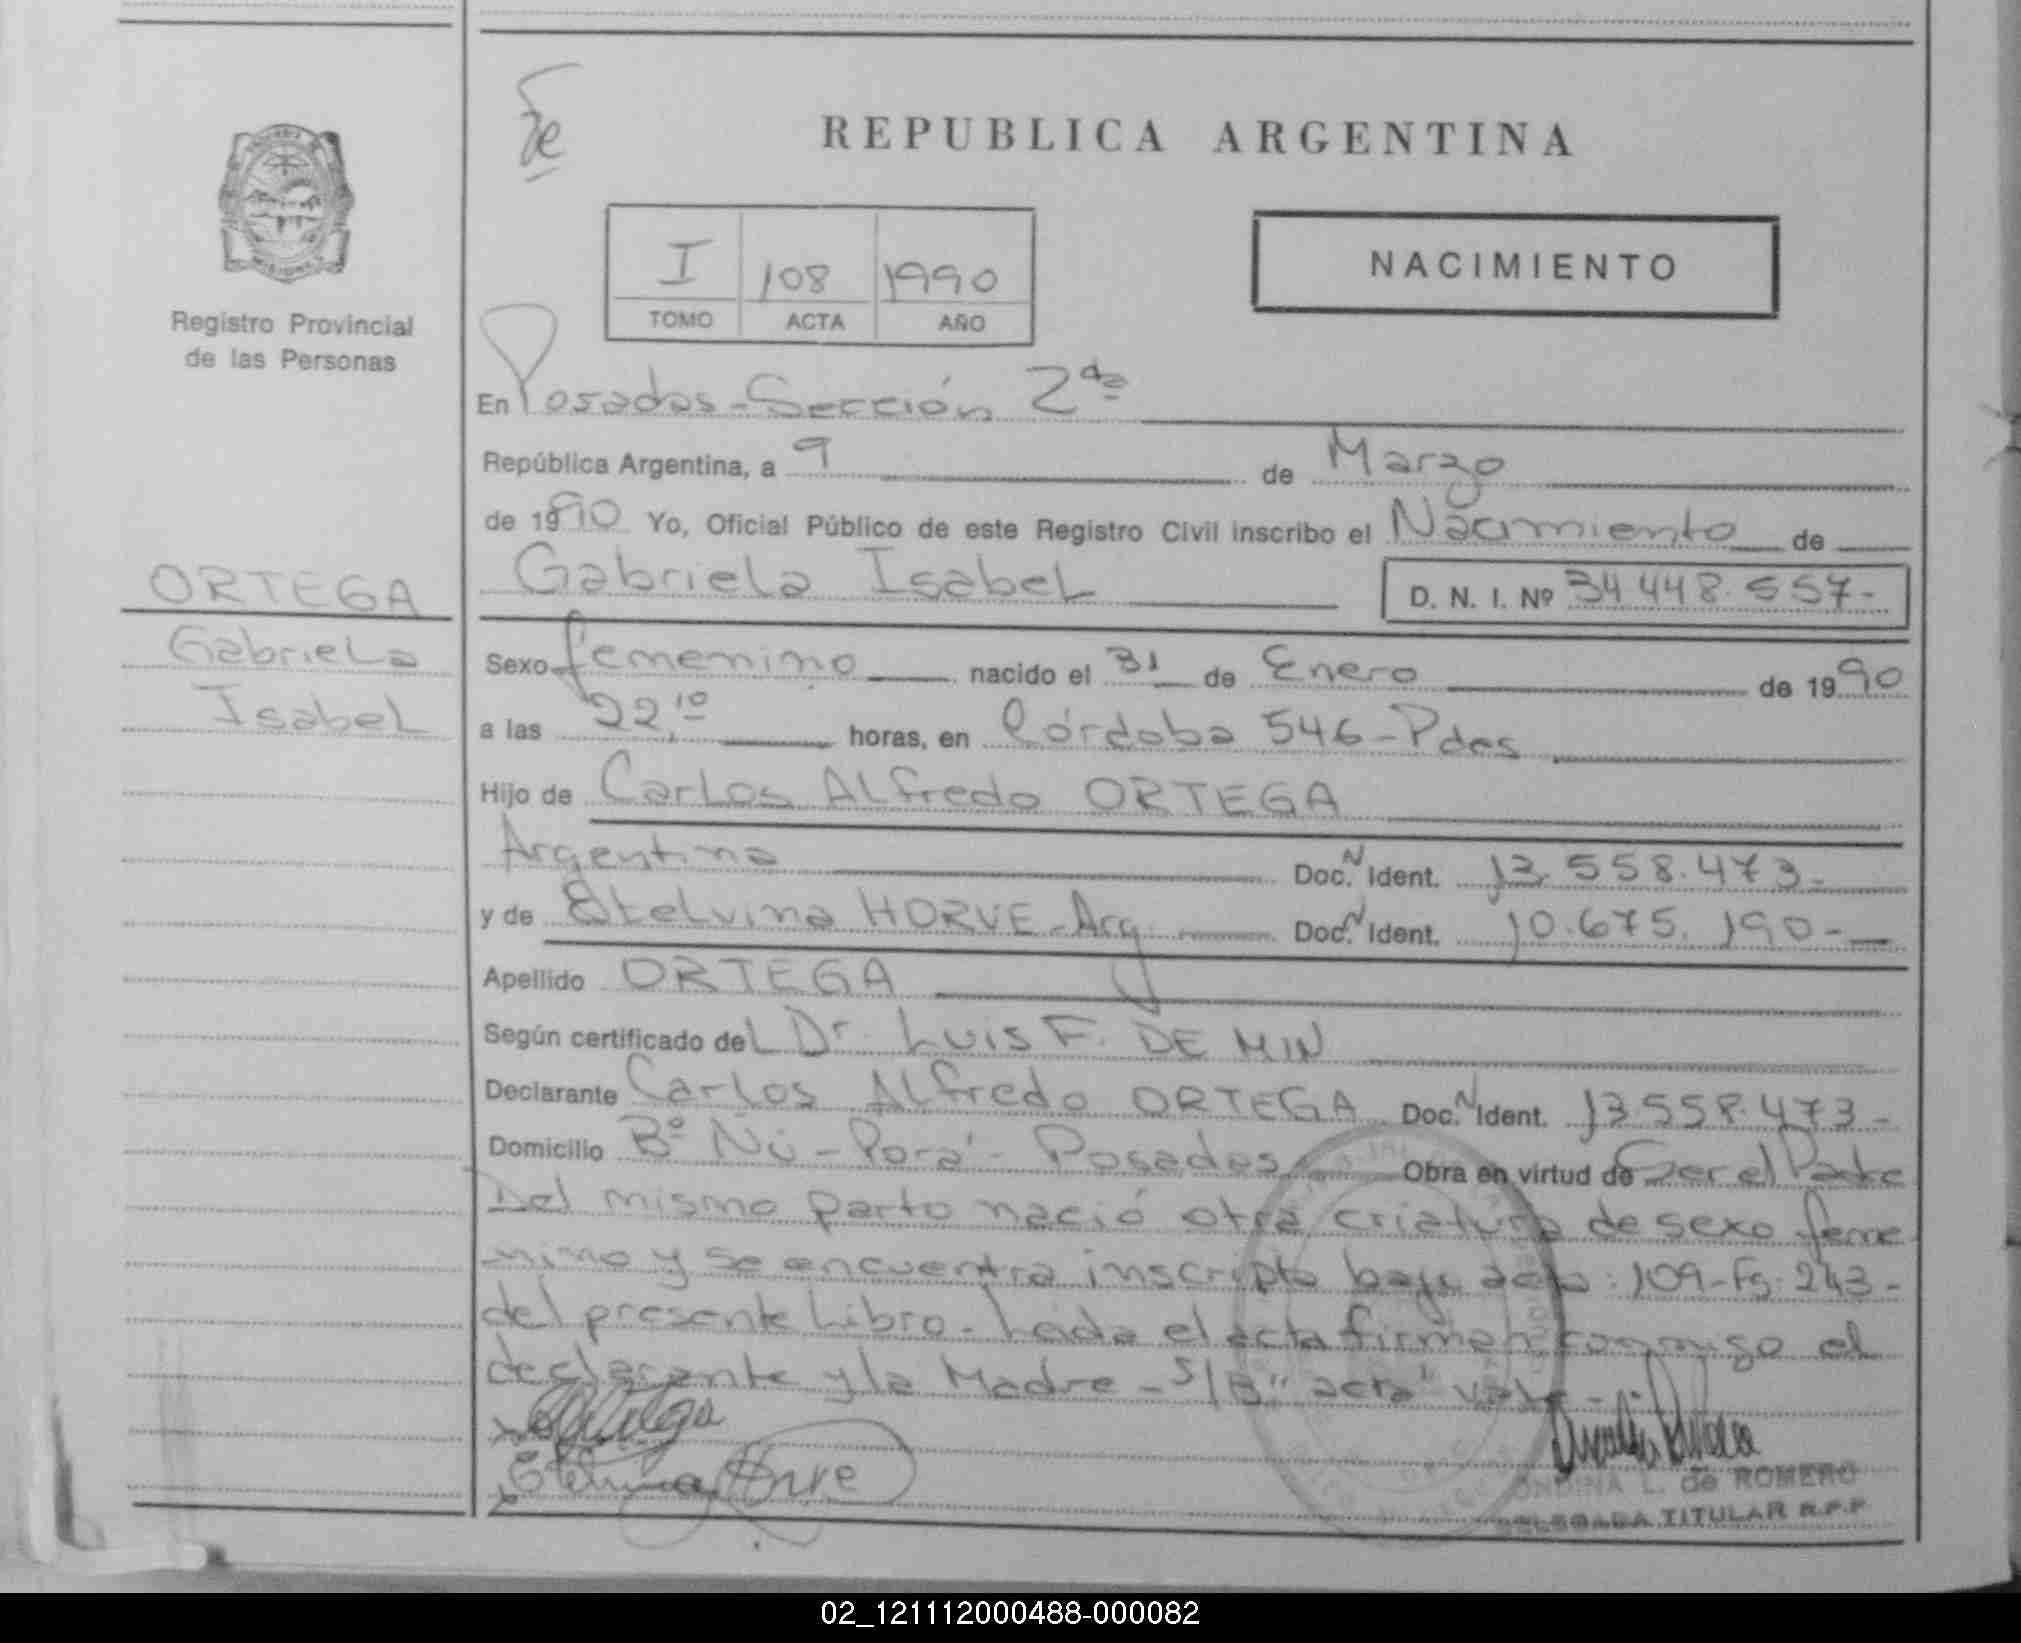 Fe
REPUBLICA ARGENTINA
I 108 1990
TOMO ACTA AÑO
NACIMIENTO
Registro Provincial
de las Personas
ORTEGA
Gabriela
Isabel
En Posadas - Sección 2da
República Argentina, a 9 de Marzo
de 1990 Yo, Oficial Público de este Registro Civil inscribo el Nacimiento de
Gabriela Isabel D. N. I. Nº 34 448.557-
Sexo femenino nacido el 31 de Enero de 1990
a las 22,10 horas, en Córdoba 546 - Pdas
Hijo de Carlos Alfredo ORTEGA
Argentina Doc. N Ident. 13.558.473-
y de Etelvina HORVE - Arg. Doc. N Ident. 10.675.190-
Apellido ORTEGA
Según certificado del Dr. Luis F. DE MIN
Declarante Carlos Alfredo ORTEGA Doc. N Ident. 13558.473-
Domicilio Bº Ñú - Porá - Posadas Obra en virtud de Ser el Padre
Del mismo parto nació otra criatura de sexo feme
nino y se encuentra inscripta bajo acta: 109 - Fs: 243 -
del presente Libro - Leida el acta firman conmigo el
declarante y la Madre - S/B "acta" vale -
Etelvina Horve
ONDINA L. de ROMERO
DELEGADA TITULAR R.P.P
02_121112000488-000082